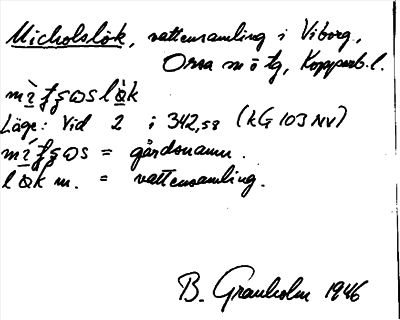 Micholslok, vattensamling i Viborg,
Orsa sn o tg, Kopparb. l.
Läge: Vid 2 i 342,58 (kG 103 NV)
= gårdsnamn.
m. = vattensamling.
B. Granholm 1946